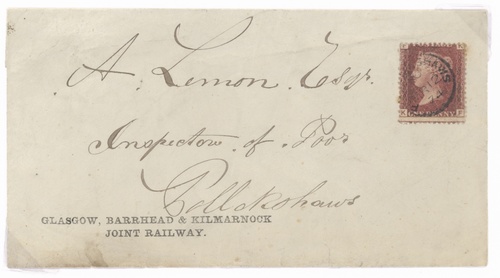 A. Lemon Esqr.
Inspector of Poor
Pollokshaws
GLASGOW, BARRHEAD & KILMARNOCK
JOINT RAILWAY.